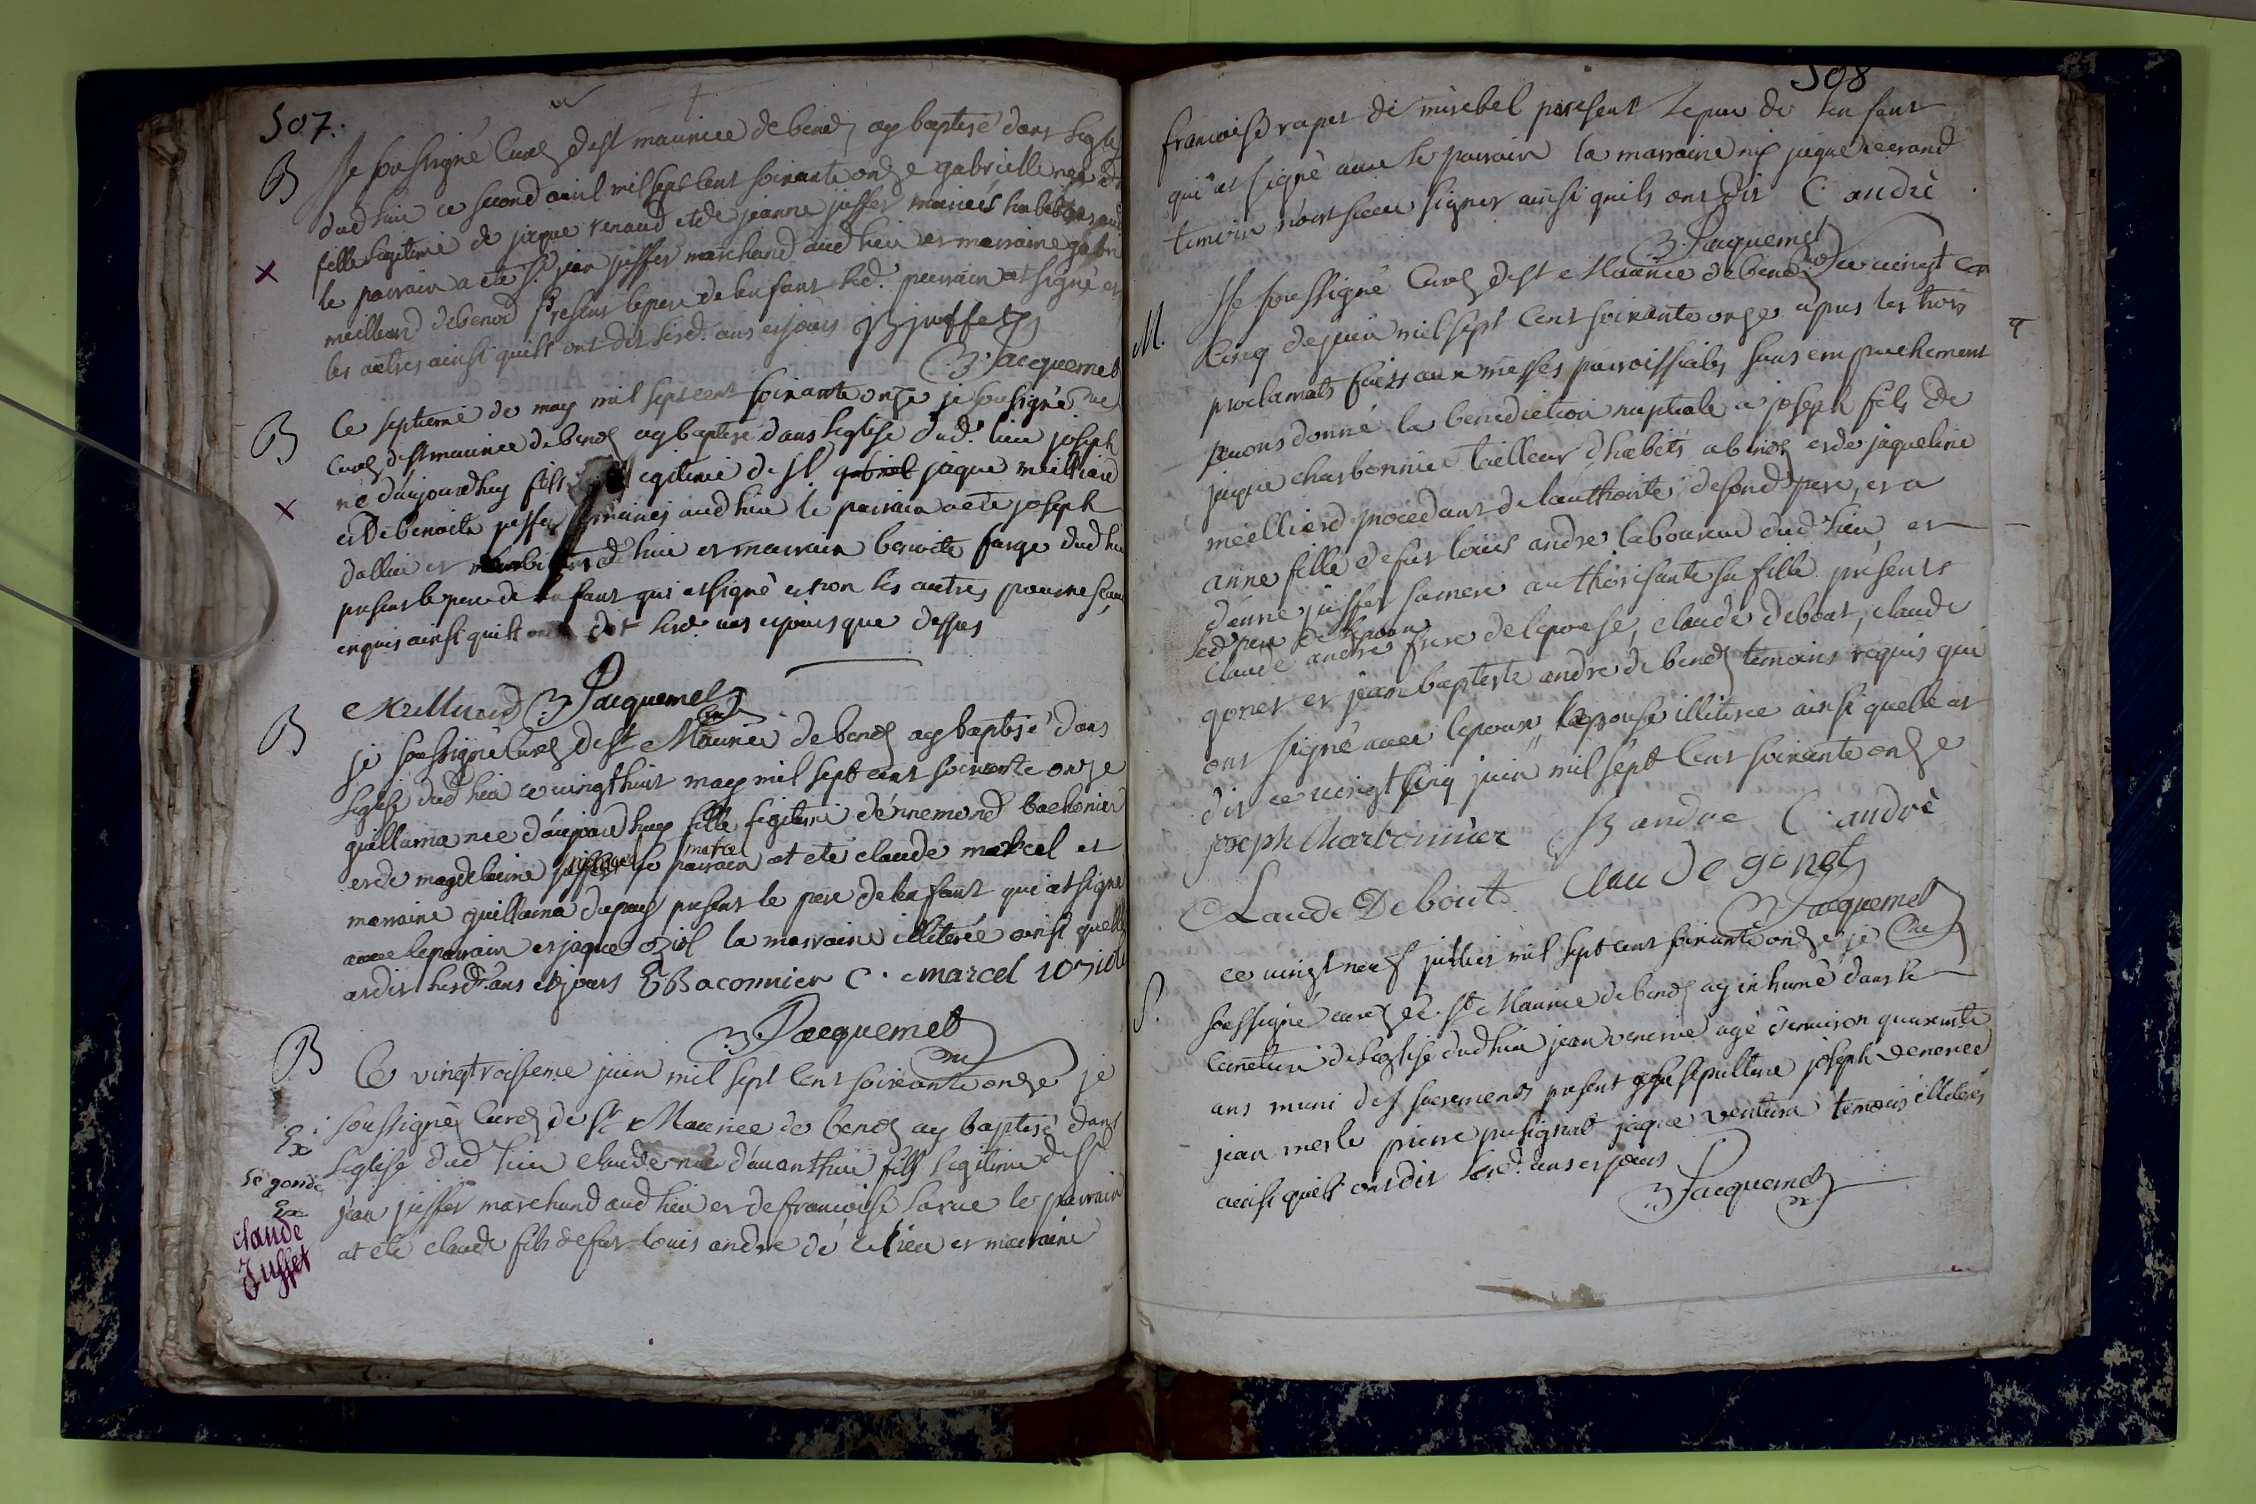 507.
B Je soussigné Curé de st maurice de benod ay baptisé dans leglise
dud lieu ce second avril mil sept cent soixante onze gabrielle née
fille legitime de jaque renaud et de jeanne juffet mariés habitans aud
le parrain a eté sr. jean juffet marchand aud lieu et marraine gabri
meilliard de benod Present le pere de lenfant led. parrain at signé et
les autres ainsi quils ont dit lesd. ans et jours B juffet
B. Jacquemet
B Ce septieme de may mil sept cent soixante onze je sousigné
Curé de st maurice de benod ay baptisé dans leglise dud. lieu joseph
né daujourdhuy fils legitime de sr gabriel jaque meilliard
et De benoite juffet mariés aud lieu le parrain a eté joseph
dallier et dud lieu et marraine benoite farge dud lieu
present le pere de lenfant qui at signé et non les autres pour ne scavoir
enquis ainsi quils ont dit lesd. ans et jours que dessus
Meilliard B Jacquemet
Cu
B je sousigné Curé de st Maurice de benod ay baptisé dans
leglise dud lieu ce vingt huit may mil sept cent soixante onze
guillama née daujourdhuy fille legitime dennemond baconier
et de magdelaine le parrain at eté claude marcel et
marraine guillama dupuy present le pere de lenfant qui at signé
avec le parrain et jaque oziol la marraine illiterée ainsi quelle
at dit lesd. ans et jours E Baconnier C. marcel
B Jacquemet
cu
B Ce vingtroisieme juin mil sept cent soixante onze je
soussigné Curé de St Maurice de benod ay baptisé dans
Ex
leglise dud lieu claude né davanthier fils legitime de sr
segonde
Ex
jean juffet marchand aud lieu et de francoise larue le parrain
claude
Juffet
at eté claude fils de fut louis andre de ce lieu et marraine
508
francoise rapet de miribel present le pere de lenfant
qui at signé avec le parrain la marraine ni jaque
temoin nont sceu signer ainsi quils ont dit C. andrè
B. Jacquemet
M. Je soussigné Curé de st Maurice de benod ce vingt
Cinq de juin mil sept cent soixante onze apres les trois
proclamats faits aux messes paroissiales sans empeschement
avons donné la benediction nuptiale a joseph fils de
jaque charbonnier tailleur dhabits a benod et de jaqueline
meilliard procedant de lauthorité de sond pere, et a
anne fille de fut louis andre laboureur dud lieu et
danne juffet sa mere authorisante sa fille présents
led pere de lepoux
claude andre frere de lepouse, claude debout, claude
gonet et jean baptiste andre de benod temoins requis qui
ont signé avec lepoux, lepouse illiterée ainsi quelle at
dit ce vingt cinq juin mil sept cent soixante onze
joseph Charbonnier B andre C. andrè
Claude Debout Claude gonet
B Jacquemet
Cu
S. ce vingt neuf juillet mil sept cent soixante onze je
soussigné curé de st Maurice de benod ay inhumé dans le
cimetiere de leglise dud lieu jean agé denviron quarente
ans muni des sacrements present a sa sepulture joseph
jean merle pierre pusignat jaque ventura temoins illiterés
ainsi quils ont dit lesd. ans et jours
B Jacquemet